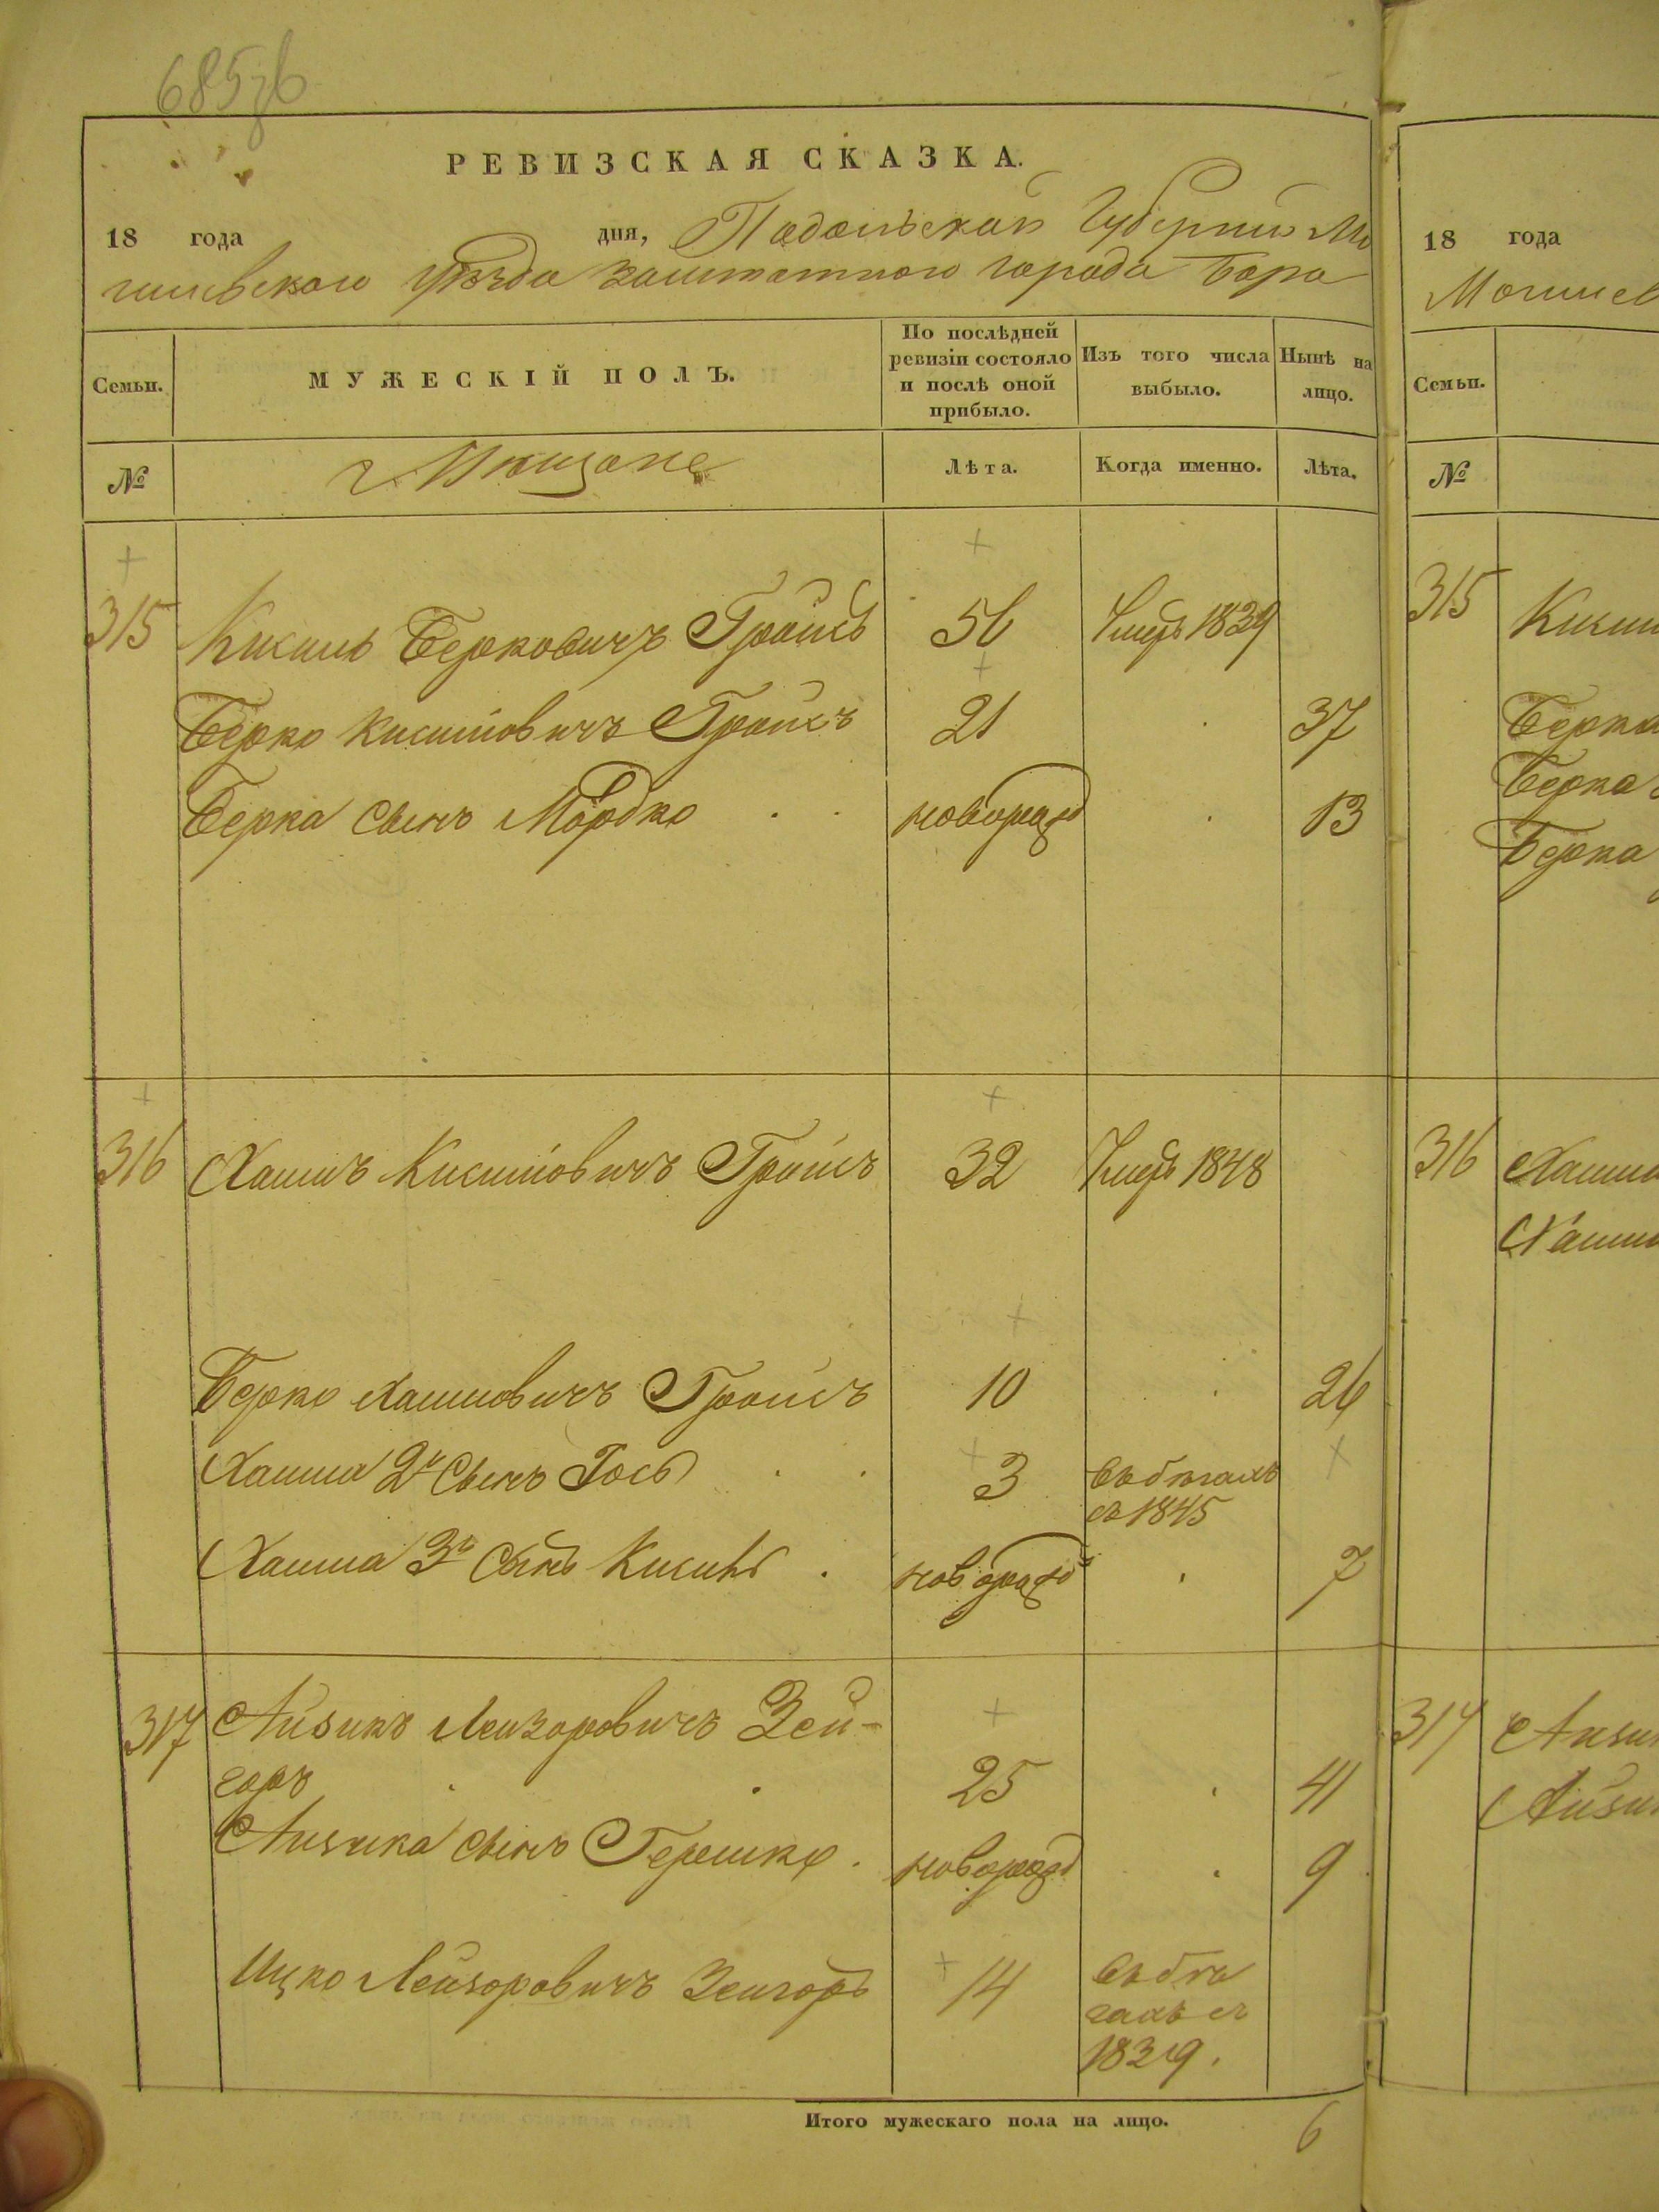 685
РЕВИЗСКАЯ СКАЗКА.
18 года дня, Подольской Губернии Мо
гилевского уѣзда заштатного города Бара
Семьи.
МУЖЕСКІЙ ПОЛЪ.
По послѣдней ревизіи состояло и послѣ оной прибыло.
Изъ того числа выбыло.
Нынѣ на лицо.
№
Мѣщане
Лѣта.
Когда именно.
Лѣта.
315 Кисиль Берковичъ Гройсъ 56 Умеръ 1839
Берко Кисилiовичъ Гройсъ 21 37
Берка сынъ Мордко новорожд 13
316 Хаимъ Кисилiовичъ Гройсъ 32 Умеръ 1848
Берко Хаимовичъ Гройсъ 10 26
Хаима 2й сынъ Гось 3 въ бѣгахъ
съ 1845
Хаима 3й сынъ Кисиль новорожд 7
317 Айзикъ Лейзоровичъ Зей-
горъ 25 41
Айзика сынъ Гершко новорожд 9
Ицко Лейзоровичъ Зейгоръ 14 въ бѣ
гахъ съ
1839.
Итого мужескаго пола на лицо.
6
18 года
Могилев
Семьи.
№
315 Кисил
Берка
Берка
Берка
316 Хаима
Хаима
317 Айзи
Айзи